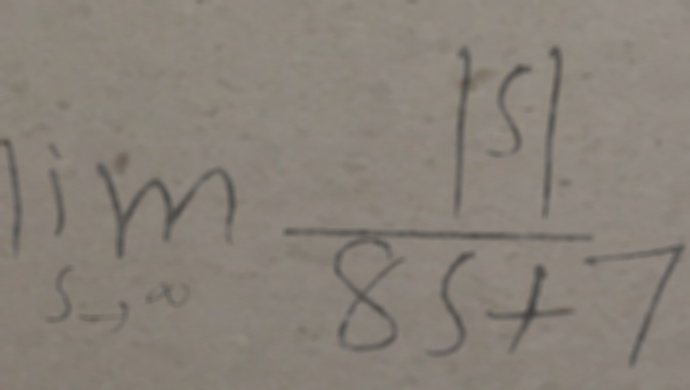 lim_{s→∞} |s| / (8s+7)